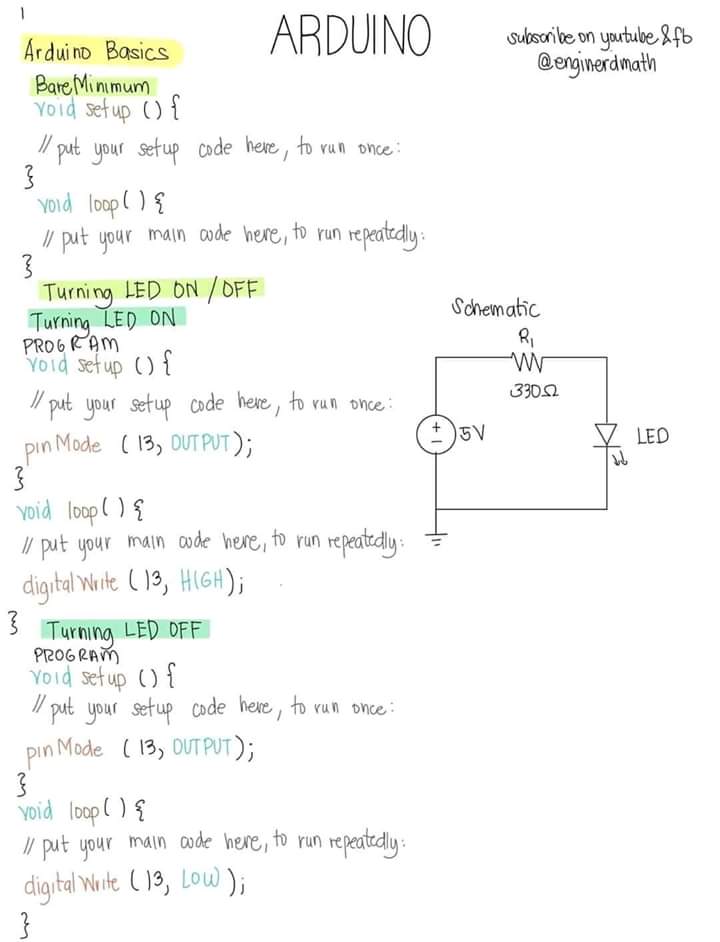 1
ARDUINO
subscribe on youtube & fb
@enginerdmath
Arduino Basics
BareMinimum
void setup () {
// put your setup code here, to run once:
}
void loop() {
// put your main code here, to run repeatedly:
}
Turning LED ON / OFF
Turning LED ON
PROGRAM
void setup () {
// put your setup code here, to run once:
pinMode (13, OUTPUT);
}
void loop() {
// put your main code here, to run repeatedly:
digitalWrite (13, HIGH);
}
Schematic
R₁
330Ω
+
−
5V
LED
Turning LED OFF
PROGRAM
void setup () {
// put your setup code here, to run once:
pinMode (13, OUTPUT);
}
void loop() {
// put your main code here, to run repeatedly:
digitalWrite (13, LOW);
}